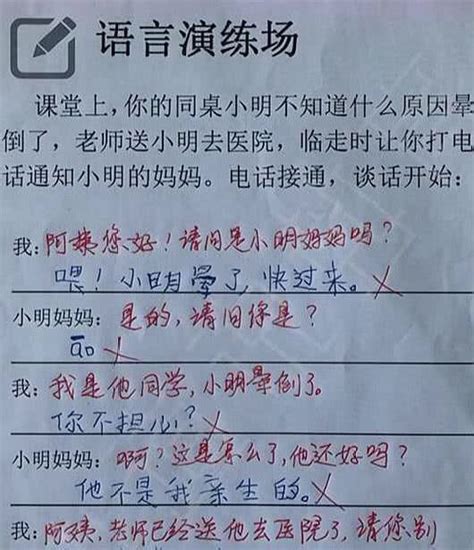 语言演练场
课堂上，你的同桌小明不知道什么原因晕
倒了，老师送小明去医院，临走时让你打电
话通知小明的妈妈。电话接通，谈话开始：
我：阿姨您好！请问是小明妈妈吗？
喂！小明晕了，快过来。
小明妈妈：是的，请问你是？
哦
我：我是他同学，小明晕倒了。
你不担心？
小明妈妈：啊？这是怎么了，他还好吗？
他不是我亲生的。
我：阿姨，老师已经送他去医院了，请您别